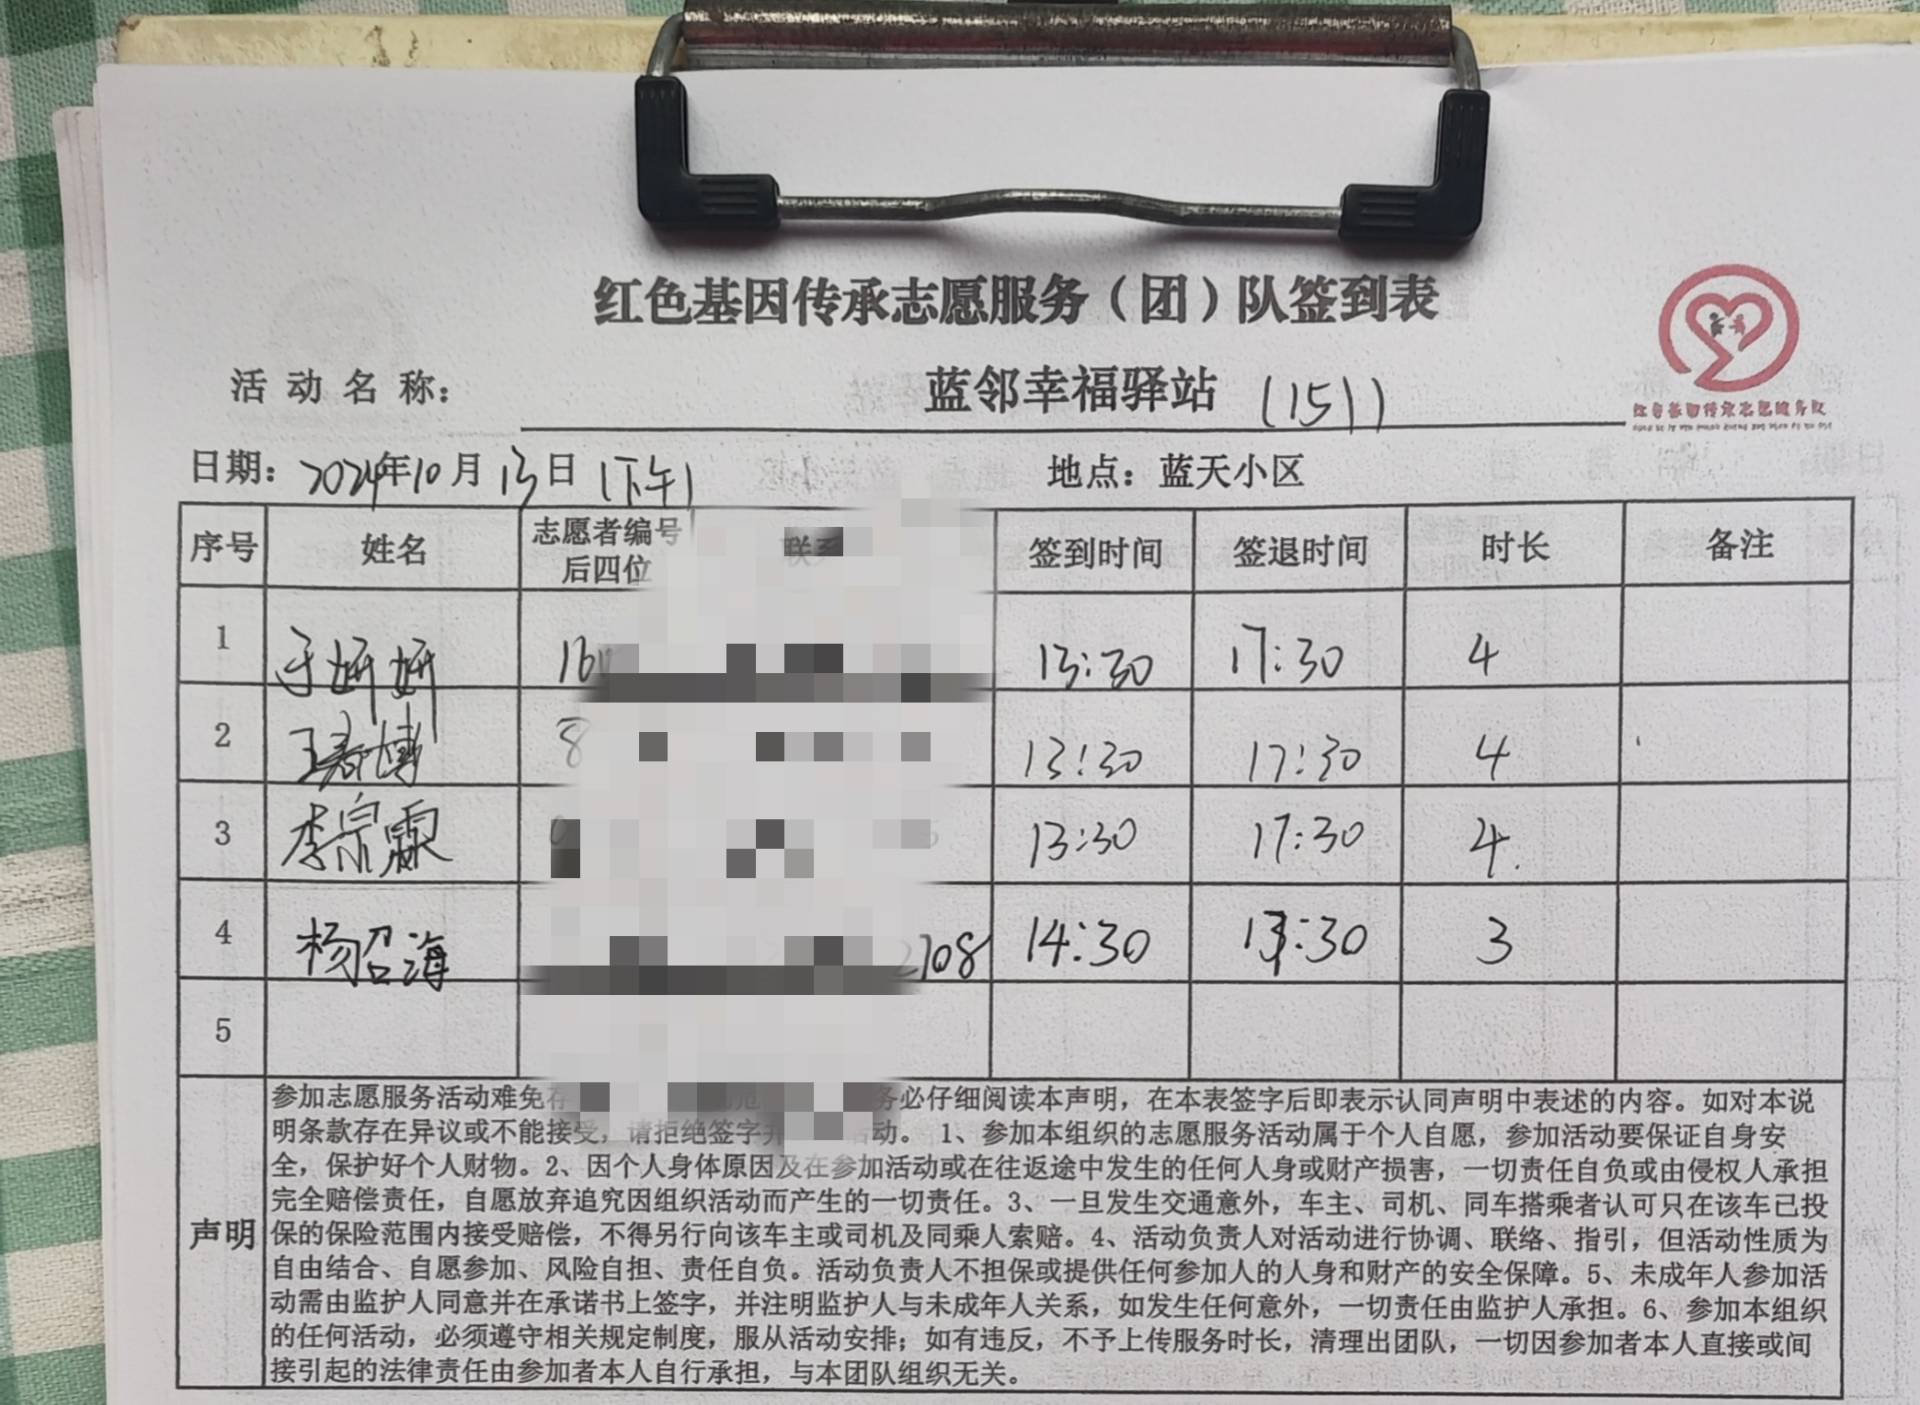 红色基因传承志愿服务（团）队签到表
活动名称： 蓝邻幸福驿站 (1511)
日期：2024年10月13日（下午） 地点：蓝天小区
序号 姓名 志愿者编号后四位 联系 签到时间 签退时间 时长 备注
1 于妍妍 16 13:30 17:30 4
2 王春博 8 13:30 17:30 4
3 李宗霖 13:30 17:30 4.
4 杨召海 2708 14:30 17:30 3
5
声明
参加志愿服务活动难免存 务必仔细阅读本声明，在本表签字后即表示认同声明中表述的内容。如对本说
明条款存在异议或不能接受，请拒绝签字并 活动。 1、参加本组织的志愿服务活动属于个人自愿，参加活动要保证自身安
全，保护好个人财物。2、因个人身体原因及在参加活动或在往返途中发生的任何人身或财产损害，一切责任自负或由侵权人承担
完全赔偿责任，自愿放弃追究因组织活动而产生的一切责任。3、一旦发生交通意外，车主、司机、同车搭乘者认可只在该车已投
保的保险范围内接受赔偿，不得另行向该车主或司机及同乘人索赔。4、活动负责人对活动进行协调、联络、指引，但活动性质为
自由结合、自愿参加、风险自担、责任自负。活动负责人不担保或提供任何参加人的人身和财产的安全保障。5、未成年人参加活
动需由监护人同意并在承诺书上签字，并注明监护人与未成年人关系，如发生任何意外，一切责任由监护人承担。6、参加本组织
的任何活动，必须遵守相关规定制度，服从活动安排；如有违反，不予上传服务时长，清理出团队，一切因参加者本人直接或间
接引起的法律责任由参加者本人自行承担，与本团队组织无关。